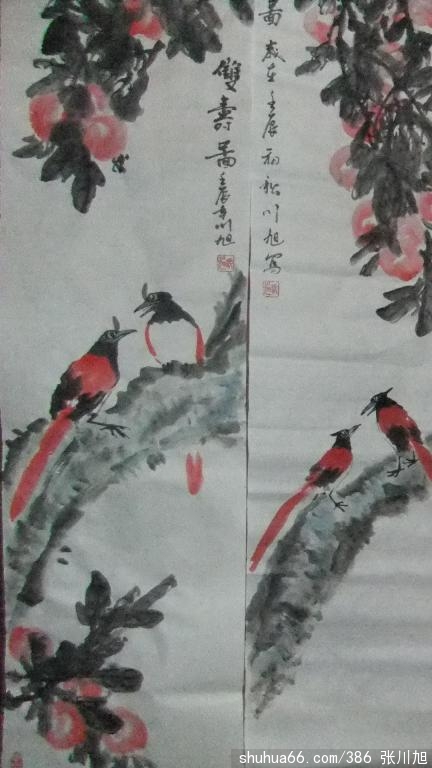 圖 歲在壬辰初秋川旭寫
雙壽圖
壬辰年川旭
shuhua66.com/386 张川旭